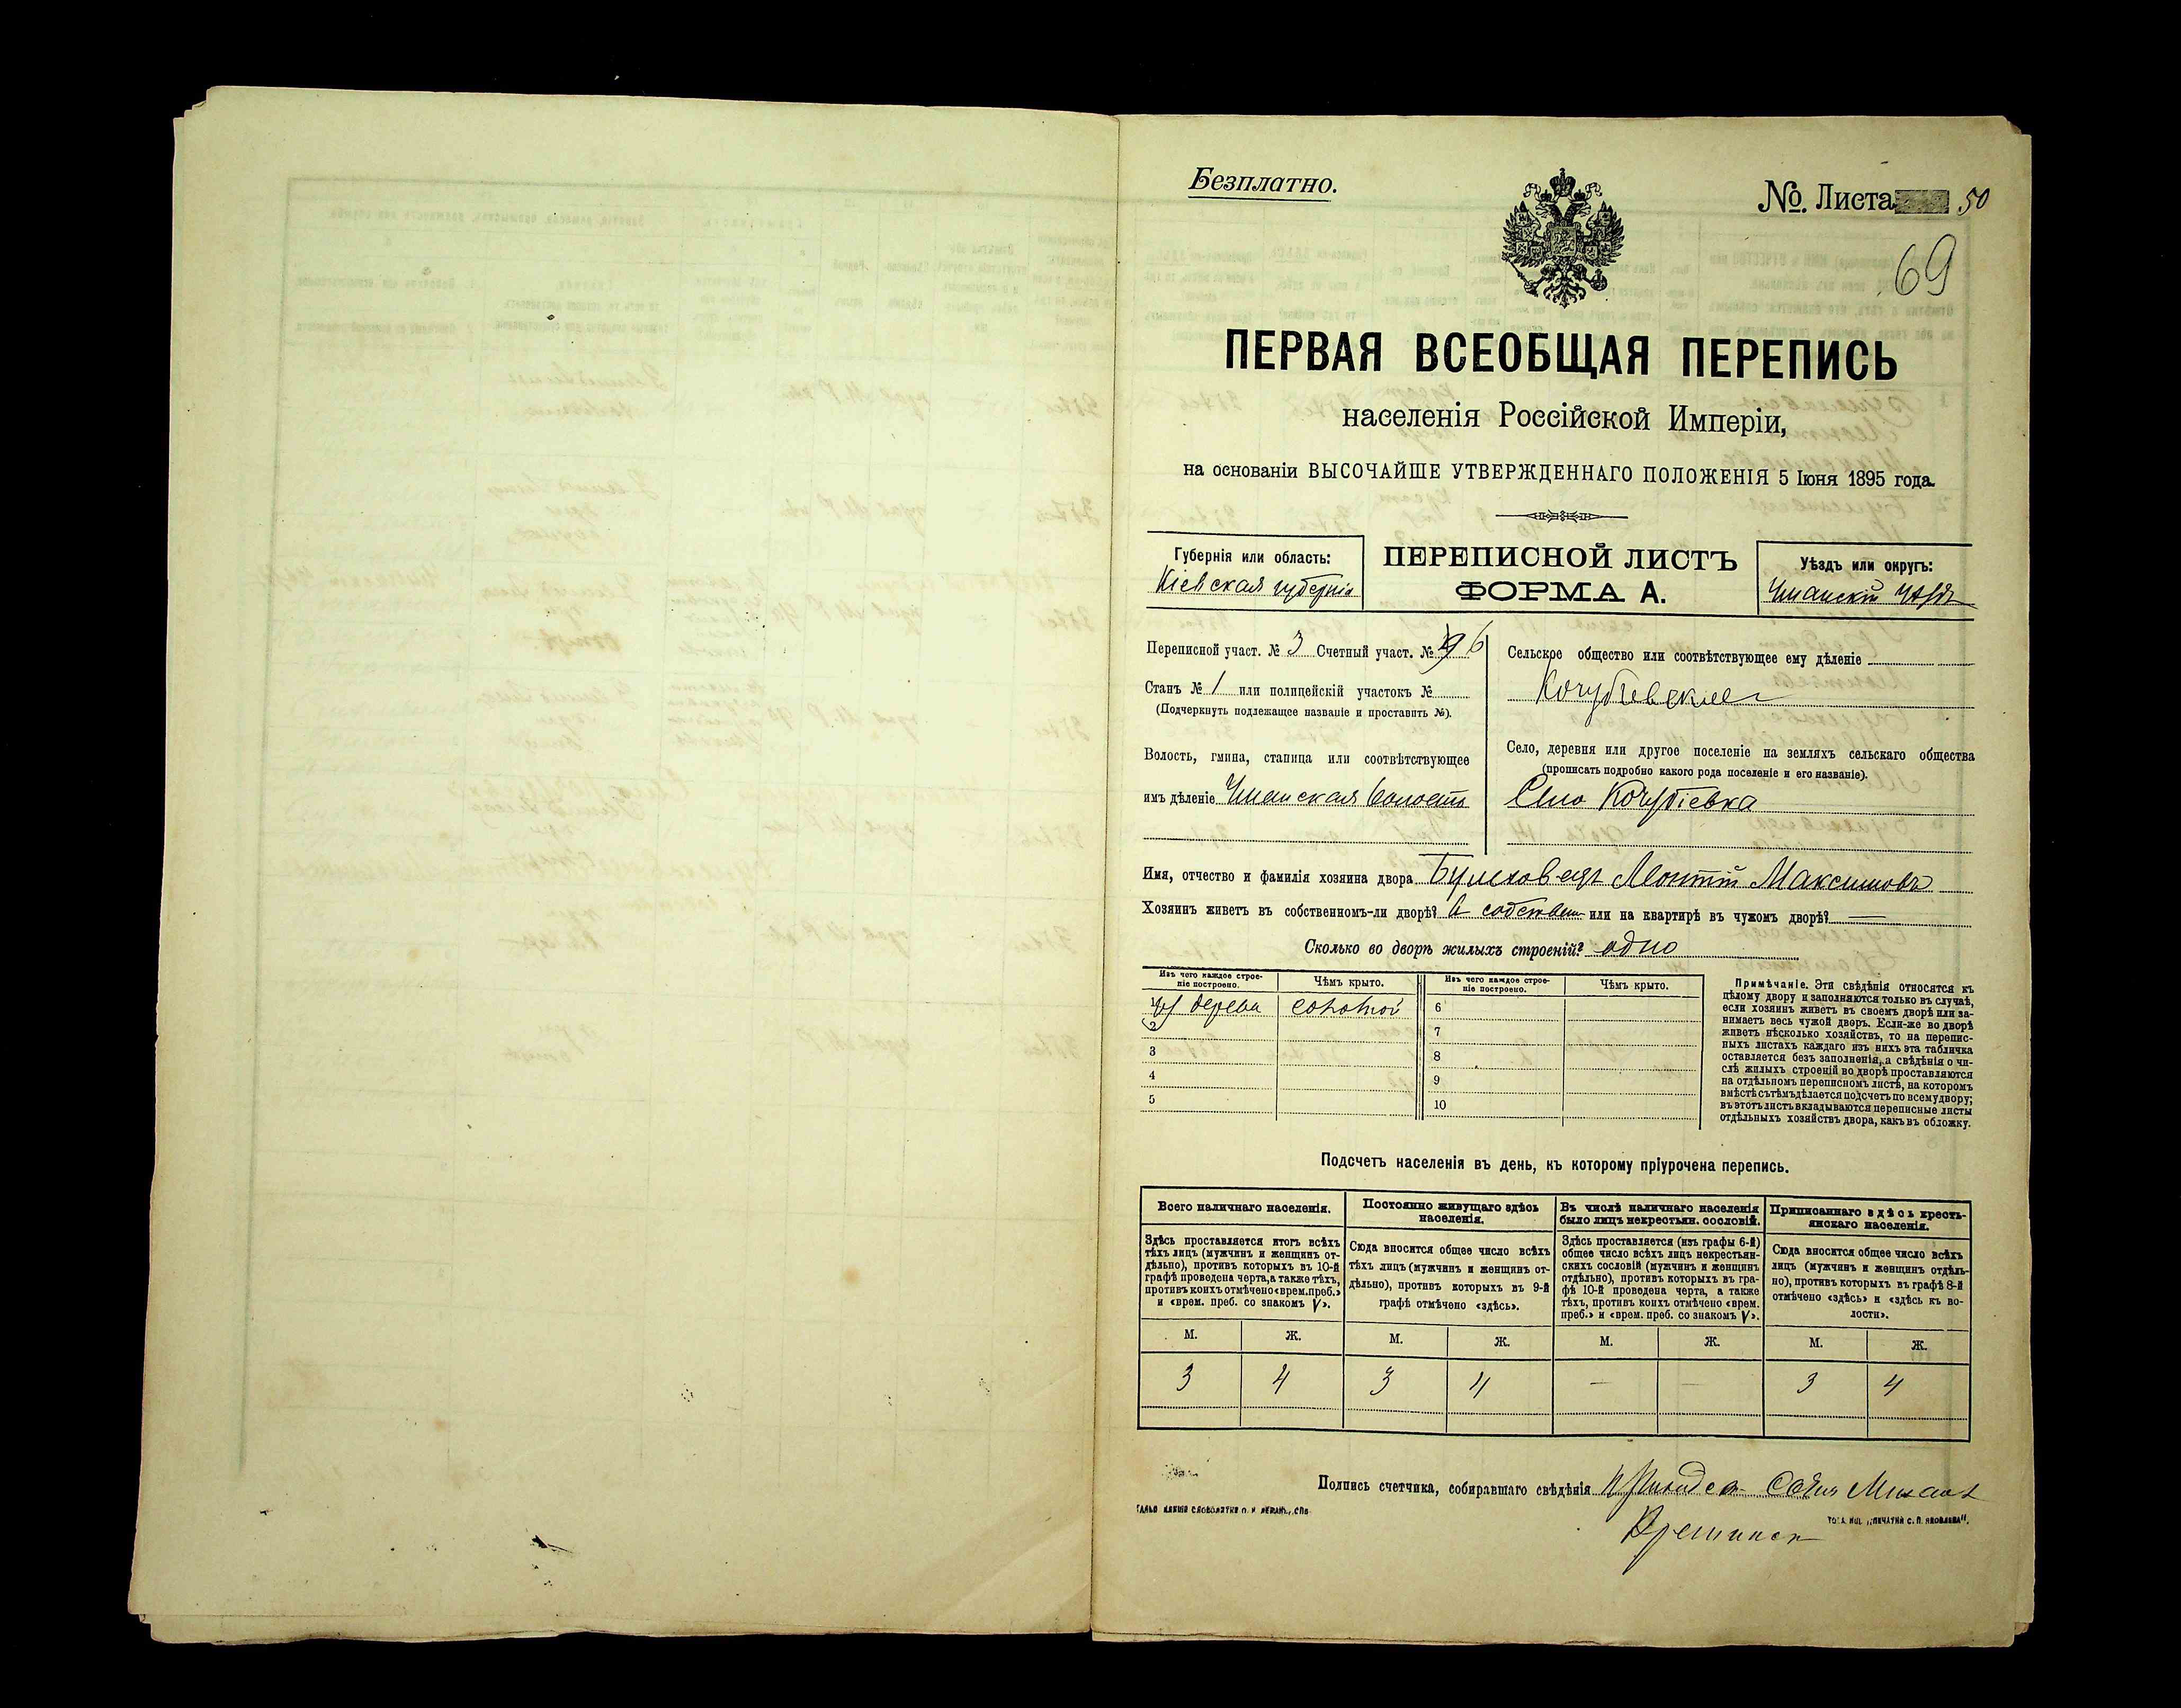 Безплатно.
№. Листа 50
69
ПЕРВАЯ ВСЕОБЩАЯ ПЕРЕПИСЬ
населенія Россійской Имперіи,
на основаніи ВЫСОЧАЙШЕ УТВЕРЖДЕННАГО ПОЛОЖЕНІЯ 5 Іюня 1895 года.
Губернія или область:
Кіевская губернія
ПЕРЕПИСНОЙ ЛИСТЪ
ФОРМА А.
Уѣздъ или округъ:
Уманскій уѣздъ
Переписной участ. № 3 Счетный участ. № 6
Станъ № 1 или полицейскій участокъ №
(Подчеркнуть подлежащее названіе и проставить №).
Волость, гмина, станица или соотвѣтствующее
имъ дѣленіе Уманская волость
Сельское общество или соотвѣтствующее ему дѣленіе
Кочубіевское
Село, деревня или другое поселеніе на земляхъ сельскаго общества
(прописать подробно какого рода поселеніе и его названіе).
Село Кочубіевка
Имя, отчество и фамилія хозяина двора Максимовъ
Хозяинъ живетъ въ собственномъ-ли дворѣ? В собствен или на квартирѣ въ чужомъ дворѣ? —
Сколько во дворѣ жилыхъ строеній? одно
Изъ чего каждое строе-
ніе построено.
Чѣмъ крыто.
Изъ чего каждое строе-
ніе построено.
Чѣмъ крыто.
1 из дерева соломой
2
3
4
5
6
7
8
9
10
Примѣчаніе. Эти свѣдѣнія относятся къ
цѣлому двору и заполняются только въ случаѣ,
если хозяинъ живетъ въ своемъ дворѣ или за-
нимаетъ весь чужой дворъ. Если-же во дворѣ
живетъ нѣсколько хозяйствъ, то на перепис-
ныхъ листахъ каждаго изъ нихъ эта табличка
оставляется безъ заполненія, а свѣдѣнія о чи-
слѣ жилыхъ строеній во дворѣ проставляются
на отдѣльномъ переписномъ листѣ, на которомъ
вмѣстѣ съ тѣмъ дѣлается подсчетъ по всему двору;
въ этотъ листъ вкладываются переписные листы
отдѣльныхъ хозяйствъ двора, какъ въ обложку.
Подсчетъ населенія въ день, къ которому пріурочена перепись.
Всего наличнаго населенія.
Здѣсь проставляется итогъ всѣхъ
тѣхъ лицъ (мужчинъ и женщинъ от-
дѣльно), противъ которыхъ въ 10-й
графѣ проведена черта, а также тѣхъ,
противъ коихъ отмѣчено «врем. преб.»
и «врем. преб. со знакомъ V».
Постоянно живущаго здѣсь
населенія.
Сюда вносится общее число всѣхъ
тѣхъ лицъ (мужчинъ и женщинъ от-
дѣльно), противъ которыхъ въ 9-й
графѣ отмѣчено «здѣсь».
Въ числѣ наличнаго населенія
было лицъ некрестьян. сословій.
Здѣсь проставляется (изъ графы 6-й)
общее число всѣхъ лицъ некрестьян-
скихъ сословій (мужчинъ и женщинъ
отдѣльно), противъ которыхъ въ гра-
фѣ 10-й проведена черта, а также
тѣхъ, противъ коихъ отмѣчено «врем.
преб.» и «врем. преб. со знакомъ V».
Приписаннаго здѣсь кресть-
янскаго населенія.
Сюда вносится общее число всѣхъ
лицъ (мужчинъ и женщинъ отдѣль-
но), противъ которыхъ въ графѣ 8-й
отмѣчено «здѣсь» и «здѣсь къ во-
лости».
М. Ж. М. Ж. М. Ж. М. Ж.
3 4 3 4 — — 3 4
Подпись счетчика, собиравшаго свѣдѣнія